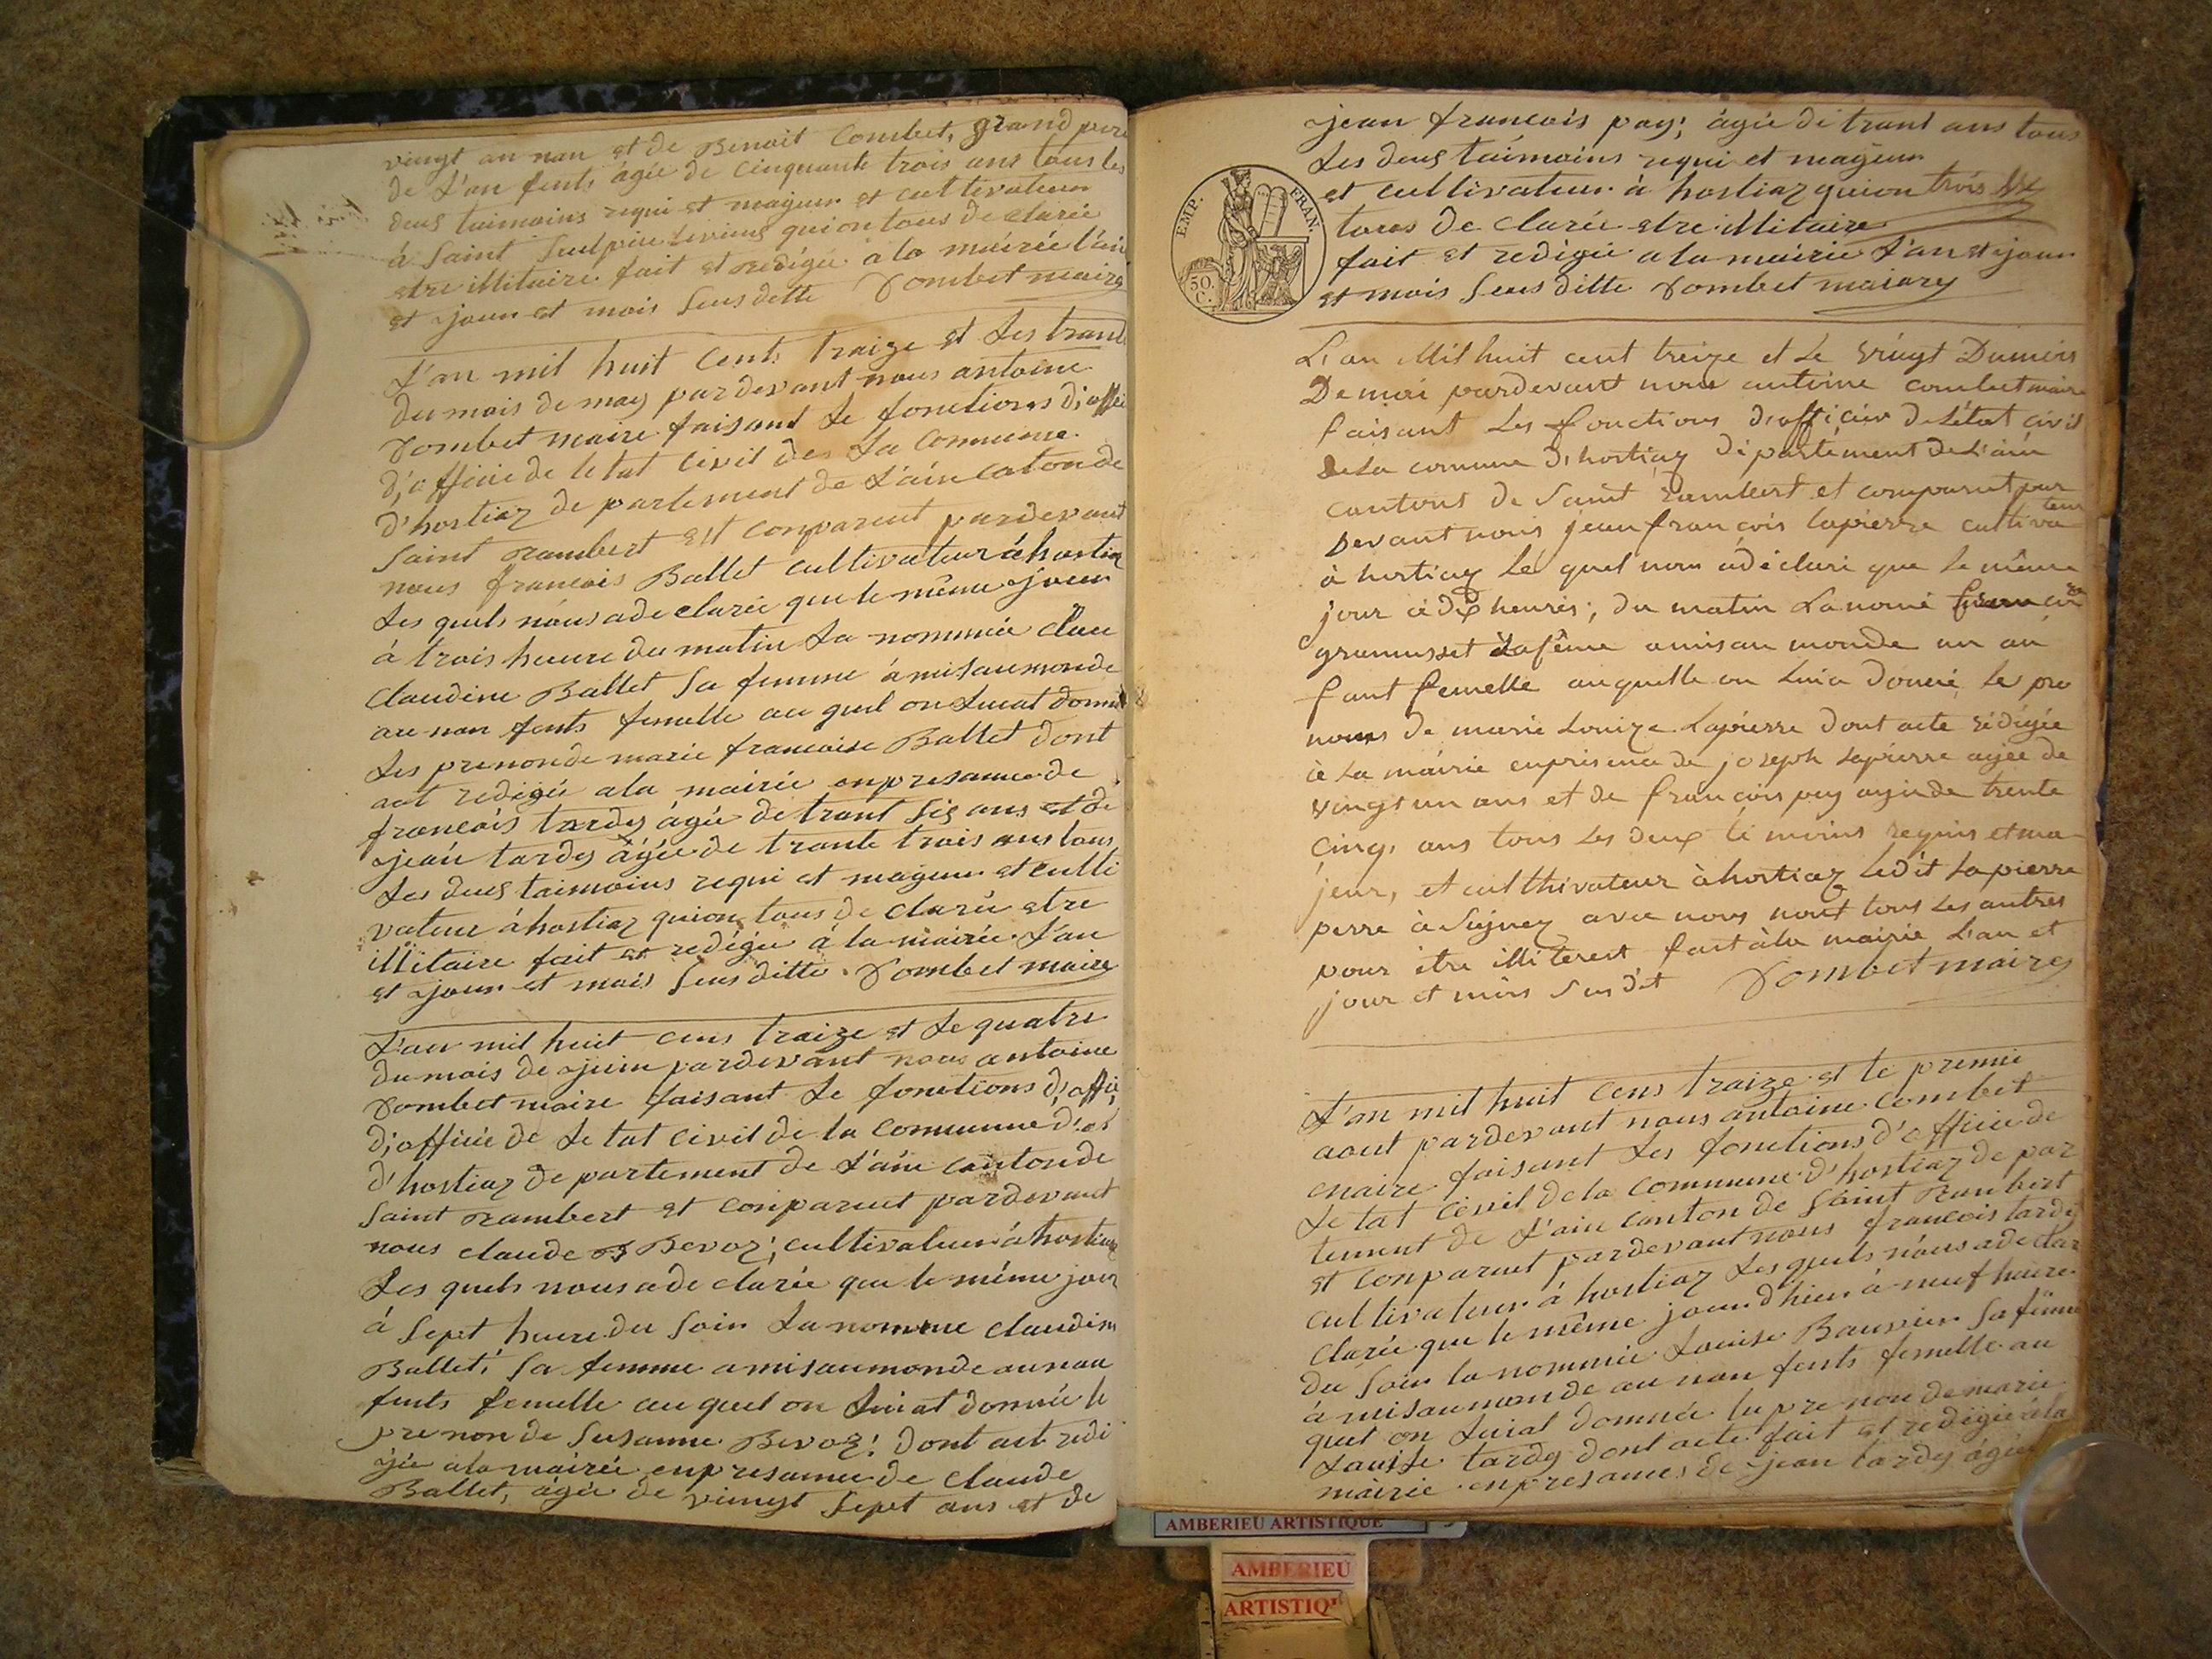 vingt au nan et de Benoit Combet, grand pere
de l'an fents âgée de cinquante trois ans tous les
deus taimoins requi et majeur et cultivateur
à Saint Sulpice quion tous de clarée
etre illitaire fait et redigée à la mairée l'an
et jour et mois sus ditte Combet maire
L'an mil huit cents traize et les trant
du mois de may pardevant nous antoine
Combet maire faisant le fonctions d'offi
d'officié de letat civil des la commune
d'hostiaz de partement de l'ain caton de
Saint rambert est conpareut pardevant
nous francois Ballet cultivateur à hostiaz
les quels nous a de clarée que le même jour
à trois heure du matin la nommée clau
claudine Ballet sa femme à mis au monde
au nan fents femelle au quel on luiat donné
les prenon de marie francoise Ballet dont
act redigée a la mairie en presance de
francois tardy âgée de trant sis ans et de
jean tardy âgée de trante trois ans tous
les deus taimoins requi et majeur et culti
vateur à hostiaz quion tous de clarée etre
illitaire fait et redigée à la mairie l'an
et jour et mois sus ditte Combet maire
L'an mil huit cens traize et le quatre
du mois de juin pardevant nous antoine
Combet maire faisant le fonctions d'offi
d'officié de letat civil de la commune d'os
d'hostiaz de partement de l'ain canton de
Saint rambert et conparuet pardevant
nous claude Bevoz, cultivateur à hostiaz
les quels nous a de clarée que le même jour
à sept heure du soir la nomme claudine
Ballet, sa femme a mis au monde au nan
fents femelle au quel on luiat donnée le
pre non de susanne Bevoz; dont act redi
jée a la mairée en presance de claude
Ballet, âgée de vingt sept ans et de
jean francois pay; âgée de trant ans tous
les deus taimoins requi et majeur
et cultivateur à hostiaz quion trois
tous de clarée etre illitaire
fait et redigée a la mairie l'an et jour
et mois sus ditte Combet maire
EMP. FRAN.
50. C.
L'an Mil huit cent treize et le vingt Du mois
De mai pardevant nous antoine combet maire
faisant les fonctions d'officier de l'état civil
de la comune d'hostiaz département de l'ain
cantons de Saint rambert et comparut par
devant nous jean françois lapierre cultiva
teur
à hostiaz le quel nous à déclaré que le même
jour à dix heures; du matin la nomé
gramusset la fême a mis au monde un an
fant femelle auquelle on luia donné le pre
noms de marie Louize Lapierre dont acte rédigée
à la mairie en présence de joseph Lapierre agée de
vingt un ans et de françois pey agée de trente
cinq, ans tous les deux témoins requis et ma
jeur, et culthivateur à hostiaz ledit lapierre
perre à signez avec nous nont tous les autres
pour être illiterest fait à la mairie L'an et
jour et mois sus dit Combet maire
L'an mil huit cens traize et le premie
aout pardevant nous antoine Combet
maire faisant les fonctions d'officié de
letat civil de la commune d'hostiaz de par
tement de l'ain canton de Saint rambert
et conparuet pardevant nous francois tardy
cultivateur à hostiaz les quels nous a de clar
clarée que le même jour d'hier à neuf heure
du soir la nommée Louise sa fême
à mis au monde au nan fents femelle au
quel on luiat donnée le pre non de marie
Louise tardy dont acte fait et redigée a la
mairie en presance de jean tardy âgée
AMBERIEU ARTISTIQUE
AMBERIEU
ARTISTIQ